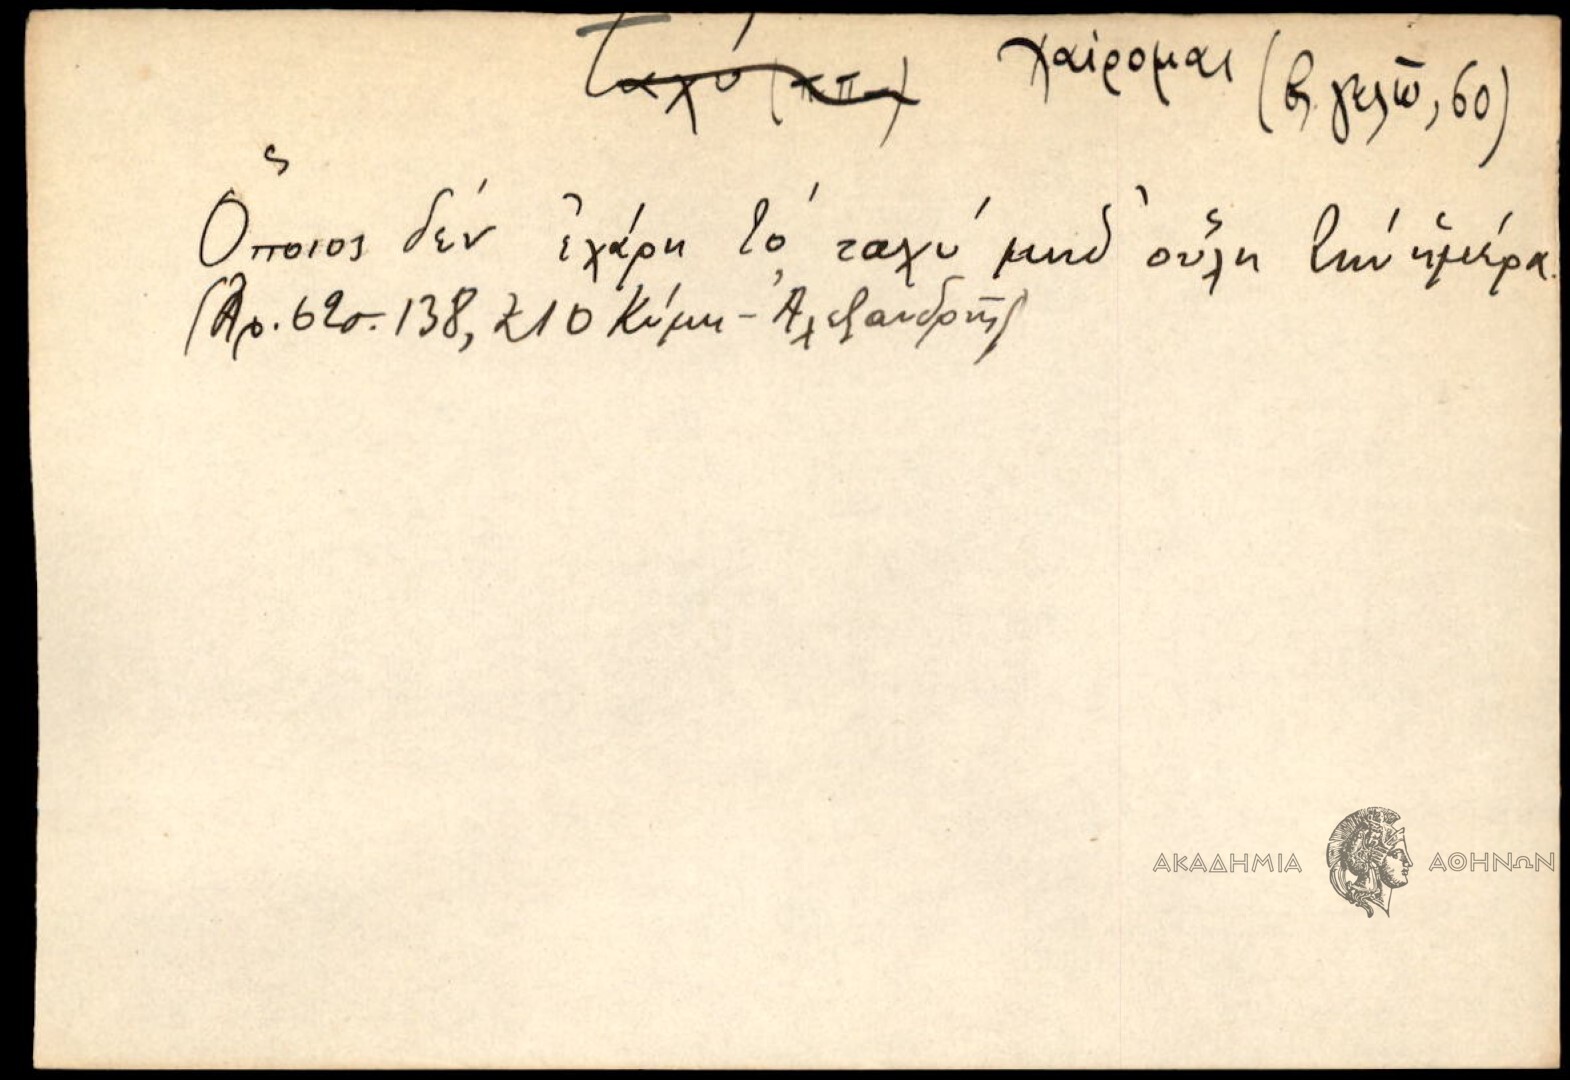 Ταχύ (κπ-) χαίρομαι (βλ. γελῶ, 60)
Ὅποιος δέν ἐχάρη τό ταχύ μηδ' οὕλη τήν ἡμέρα.
(Ἀρ. 62 σ. 138, 210 Κύμη - Ἀλεξανδρῆς)
ΑΚΑΔΗΜΙΑ ΑΘΗΝΩΝ